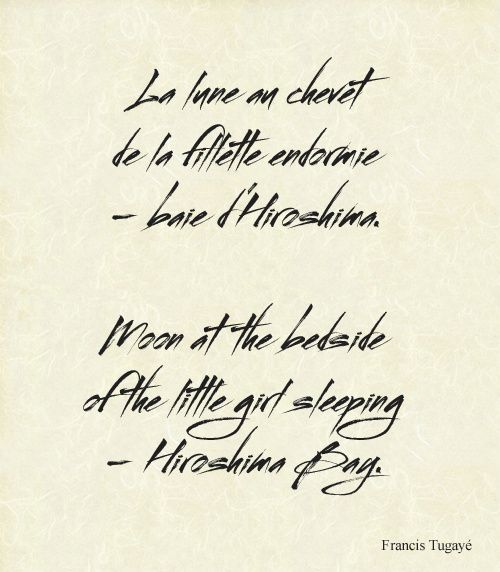 La lune au chevet
de la fillette endormie
– baie d'Hiroshima.
Moon at the bedside
of the little girl sleeping
– Hiroshima Bay.
Francis Tugayé